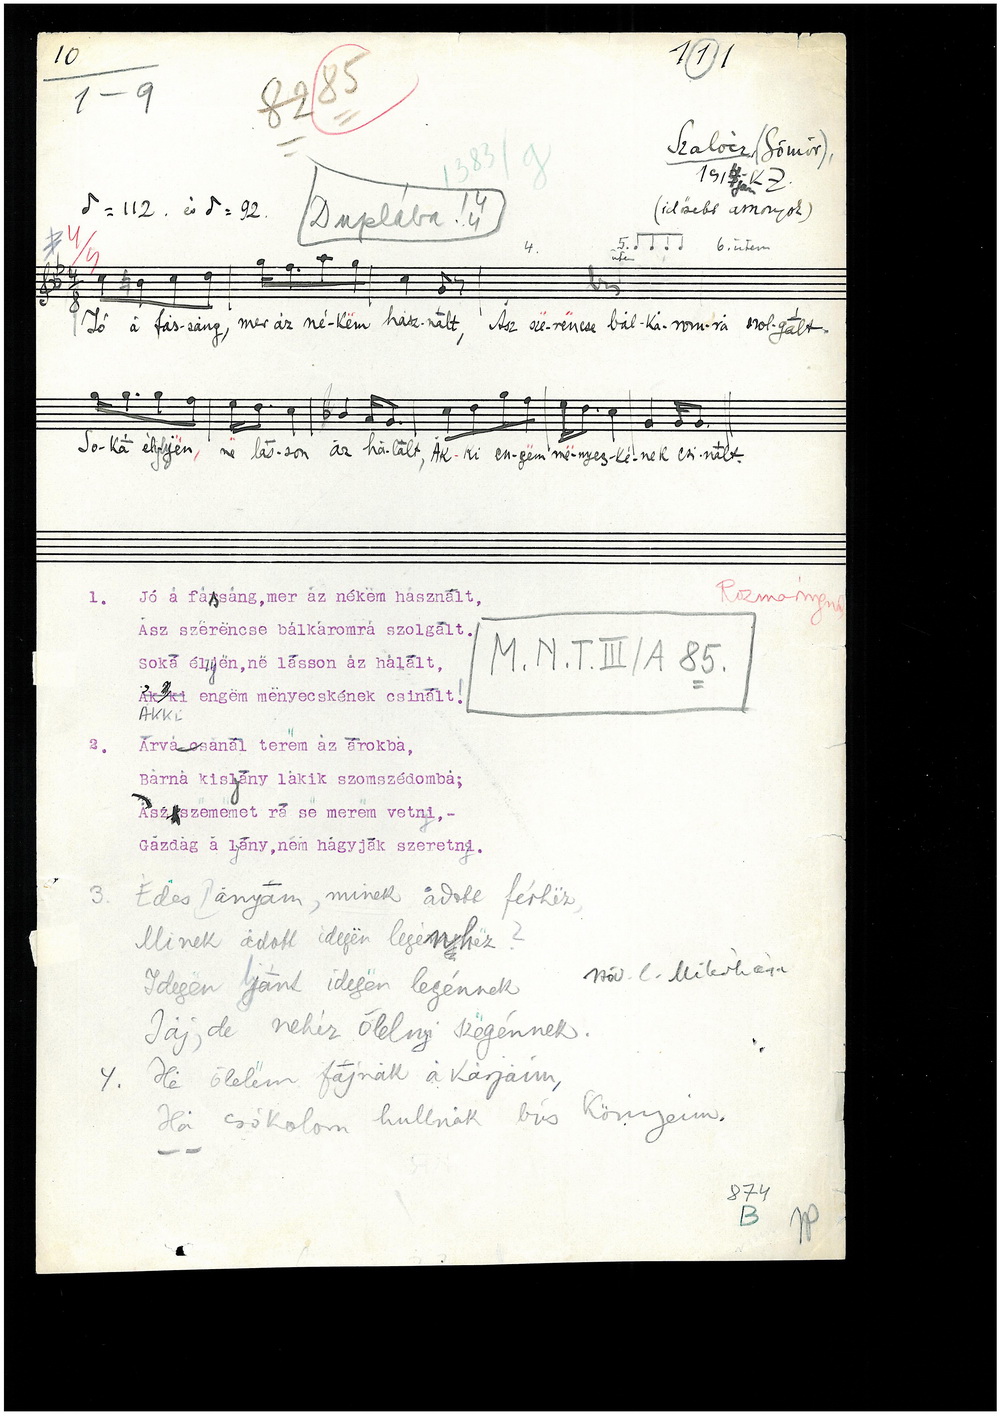 10
1-9
82 85
111
Szalócz (Gömör),
191 KZ.
(idősebb asszonyok)
1383/g
Duplába! 4/4
♪=112. és ♪=92.
4/4
4. 5. ütem 6. ütem
Jó å fás-sáng, mer åz né-këm hász-nált, Åsz szë-rëncse bål-kå-rom-rå szol-gált.
So-ká éljën, në lás-son åz hå-lált, Åk-ki en-gëm më-nyecs-ké-nek csi-nált.
1. Jó å fássáng,mer åz nékëm hásznált,
Åsz szërëncse bålkårområ szolgált.
soká éljën,në lásson åz hålált,
Åkki engëm mënyecskének csinált!
AKKI
Rozmaring
M.N.T. III/A 85.
2. Árvå csånál terëm åz árokbå,
Bårnå kislány låkik szomszédombå;
Åsz szemëmet rá së merëm vetnj,-
Gázdåg å lány,nëm hågyják szeretnj.
3. Édes ányám, minek ådott férhëz,
Minek ådott idegën legénhëz?
Idegën ljánt idegën legénnek
Jåj, de nehéz ölelnyi szëgénnek.
Nov. l. Mikóháza
4. Hå ölelëm fájnåk å kårjåim,
Hå csókolom hullnåk bús könnyeim.
874
B